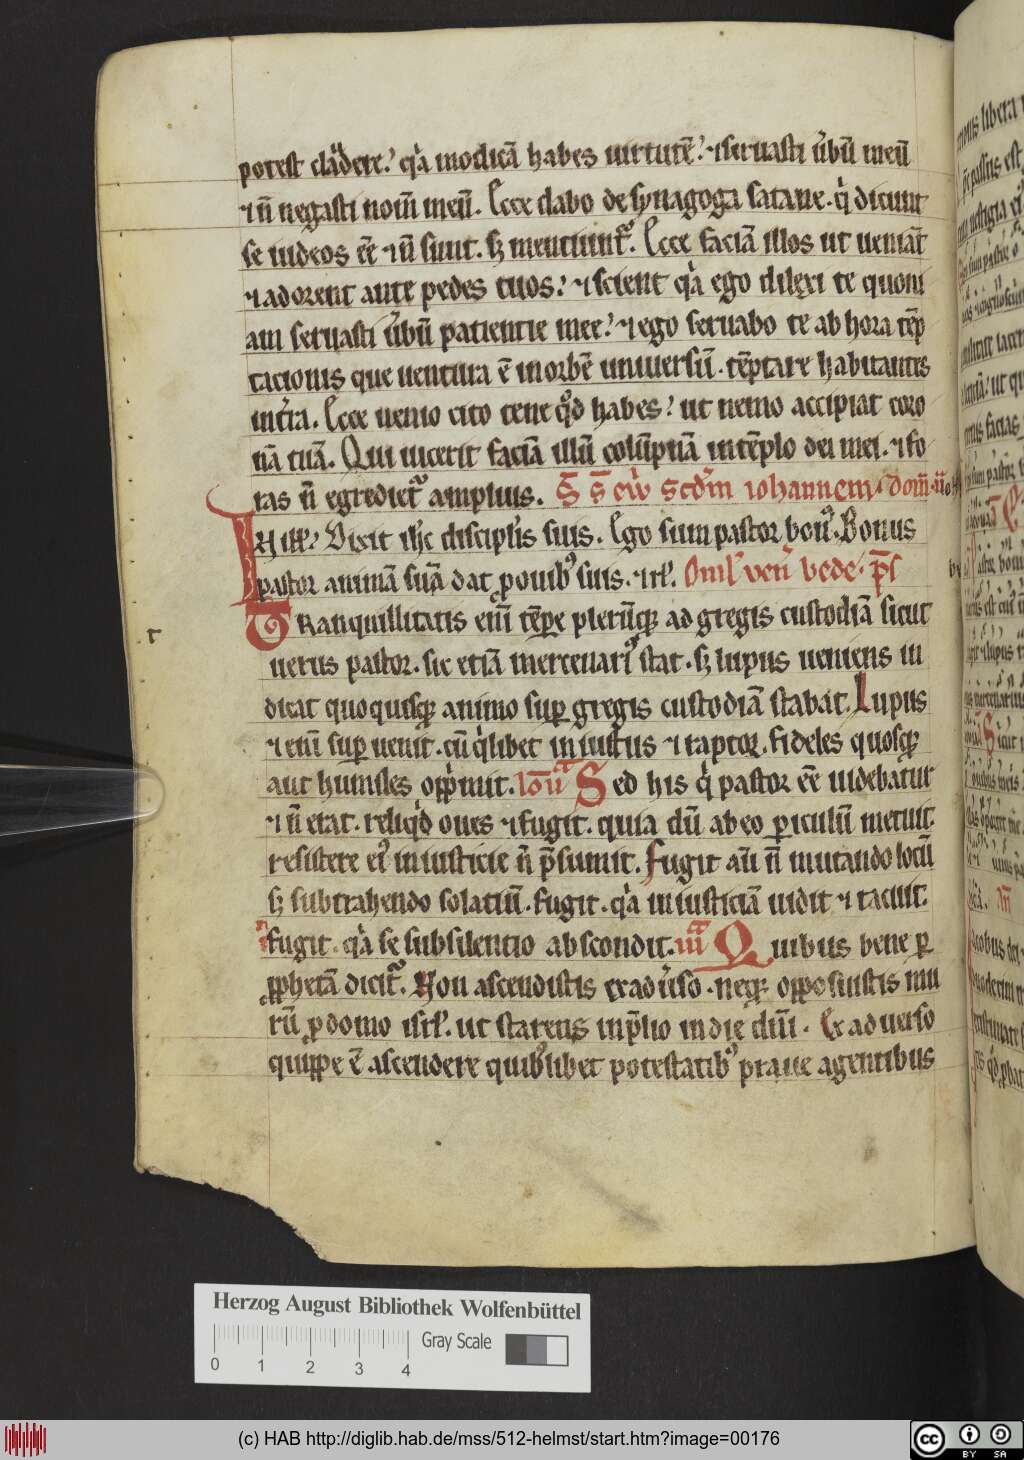 potest cladere. q̇a modicā habes uirtutē. ⁊ seruasti ůbū meū
⁊ n̄ negasti nom̄ meū. Ecce dabo de synagoga satane. q̇ dicunt
se iudeos eē ⁊ n̄ sunt. sꝫ mentiunt᷑. Ecce faciā illos ut ueniāt
⁊ adorent ante pedes tuos. ⁊ scient q̇a ego dilexi te quoni
am seruasti ůbū patientie mee. ⁊ ego seruabo te ab hora tēp
tacionis que uentura ē in orbē uniuersū. tēptare habitantes
in t̄ra. Ecce uenio cito tene qd̊ habes. ut nemo accipiat coro
nā tuā. Qui uicerit faciā illū colūpnā in tēplo dei mei. ⁊ fo
ras n̄ egrediet᷑ amplius. S̄ s̄ ew̄ scd̄m iohannem. dom̄. ii
IN ill̄. Dixit ih̄c discipl̄is suis. Ego sum pastor bon᷒. Bonus
pastor animā suā dat ꝓ ouib᷒ suis. ⁊ rl̄. Omł uen̄ bede. p̄s
TRanquillitatis enī tēpe plerūqꝫ ad gregis custodiā sicut
uerus pastor. sic etiā mercenari᷒ stat. sꝫ lupus ueniens in
dicat quo quisqꝫ animo suꝑ gregis custodiā stabat. Lupus
⁊ enī suꝑ uenit. cū q̇libet iniustus ⁊ raptor. fideles quosqꝫ
aut humiles opṗmit. Sed his q̇ pastor eē uidebatur
⁊ n̄ erat. reliqḋ oues ⁊ fugit. quia dū ab eo ꝑiculū metuit.
resistere ei᷒ iniusticie n̄ p̄sumit. fugit aū n̄ mutando locū
sꝫ subtrahendo solatiū. fugit. q̇a iniusticiā uidit ⁊ tacuit.
fugit. q̇a se sub silentio abscondit. Quibus bene ꝑ
ꝓphetā dicit᷑. Non ascendistis ex aduerso. neqꝫ opposuistis mu
rū ꝓ domo isrl̄. ut staretis in p̄lio in die dn̄i. Ex aduerso
quippe ē ascendere quib᷒libet potestatib᷒ praue agentibus
r
Herzog August Bibliothek Wolfenbüttel
Gray Scale
0 1 2 3 4
(c) HAB http://diglib.hab.de/mss/512-helmst/start.htm?image=00176
cc BY SA